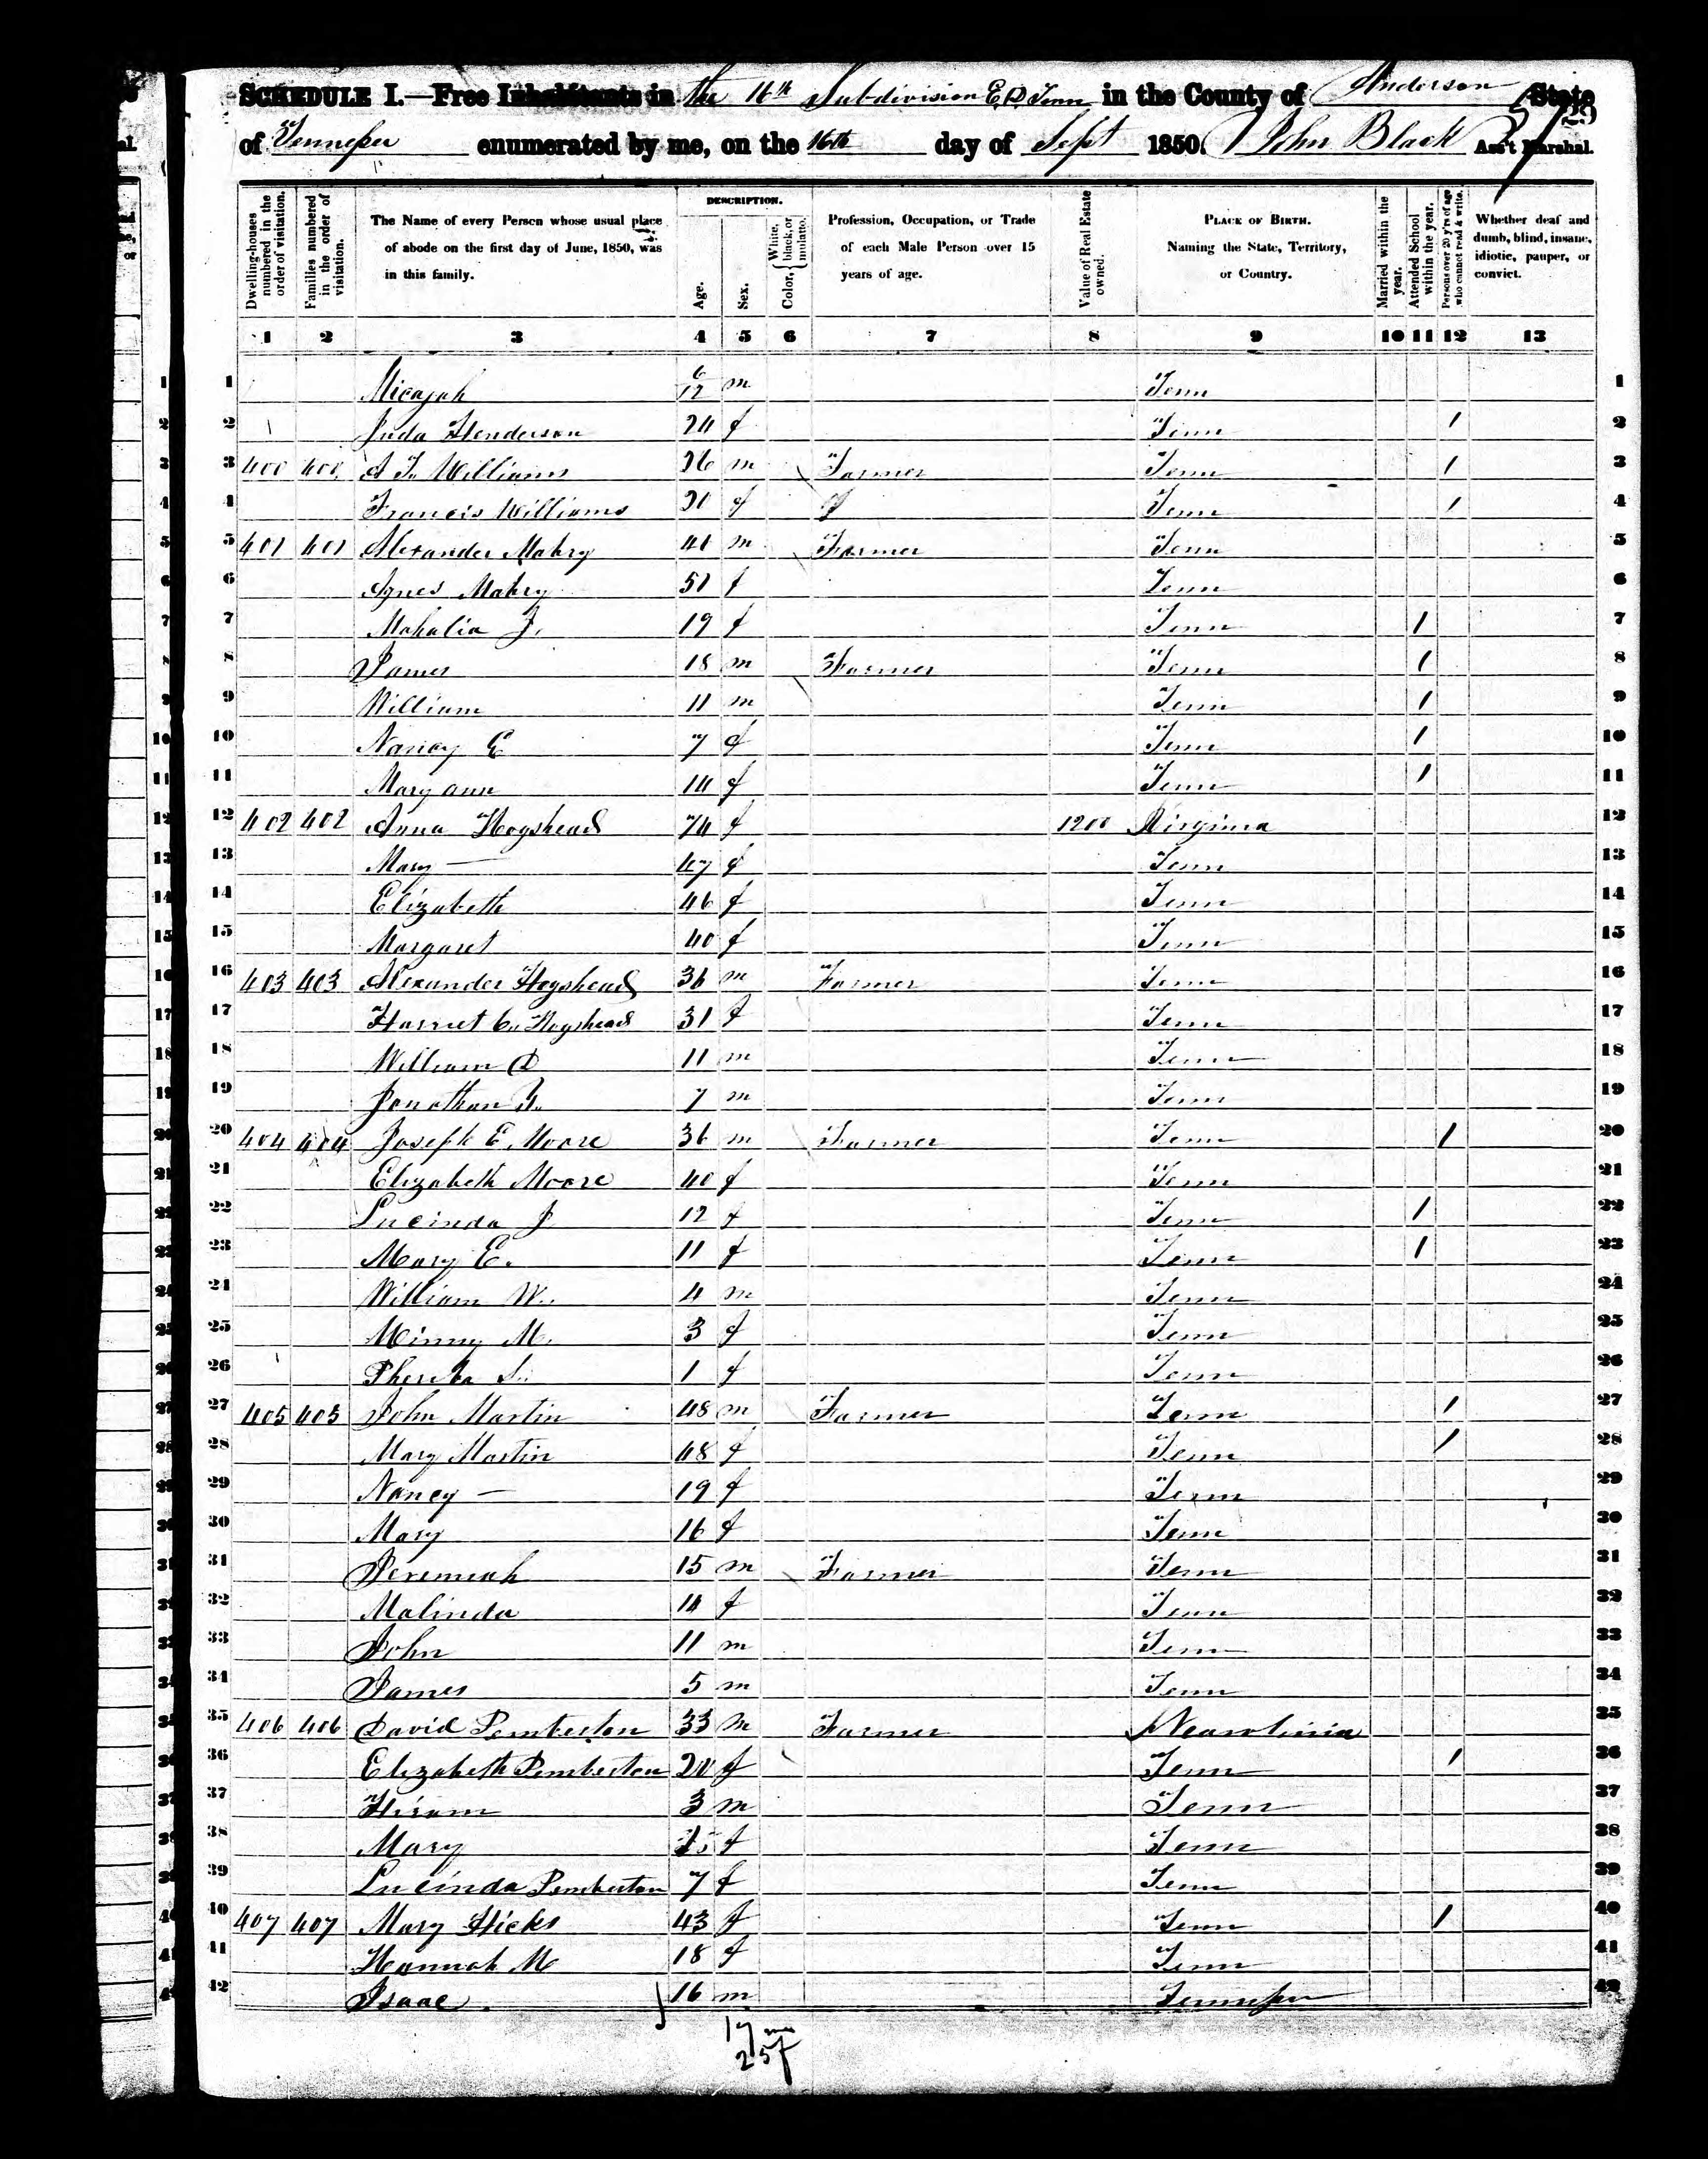 SCHEDULE I.—Free Inhabitants in the 16th Subdivision E.D. Tenn in the County of Anderson State
of Tennessee enumerated by me, on the 16th day of Sept 1850. John Black Ass't Marshal.
29
Dwelling-houses numbered in the order of visitation. Families numbered in the order of visitation. The Name of every Person whose usual place of abode on the first day of June, 1850, was in this family. DESCRIPTION. Age. Sex. Color, { White, black, or mulatto. Profession, Occupation, or Trade of each Male Person over 15 years of age. Value of Real Estate owned. PLACE OF BIRTH. Naming the State, Territory, or Country. Married within the year. Attended School within the year. Persons over 20 y'rs of age who cannot read & write. Whether deaf and dumb, blind, insane, idiotic, pauper, or convict.
1 2 3 4 5 6 7 8 9 10 11 12 13
1 Micajah 6/12 m Tenn 1
2 Juda Henderson 24 f Tenn / 2
3 400 400 Williams 26 m Farmer Tenn / 3
4 Francis Williams f Tenn / 4
5 401 401 Alexander Mabry m Farmer Tenn 5
6 Agnes Mabry 51 f Tenn 6
7 Mahalia J. 19 f Tenn / 7
8 James 18 m Farmer Tenn / 8
9 William 11 m Tenn / 9
10 Nancy E 7 f Tenn / 10
11 Mary ann 14 f Tenn / 11
12 402 402 Anna Hogshead 74 f 1200 Virginia 12
13 Mary — 47 f Tenn 13
14 Elizabeth 46 f Tenn 14
15 Margaret 40 f Tenn 15
16 403 403 Alexander Hogshead 36 m Farmer Tenn 16
17 Harriet C. Hogshead 31 f Tenn 17
18 William D 11 m Tenn 18
19 Jonathan 7 m Tenn 19
20 404 404 Joseph E. Moore 36 m Farmer Tenn / 20
21 Elizabeth Moore 40 f Tenn 21
22 Lucinda J 12 f Tenn / 22
23 Mary E. 11 f Tenn / 23
24 William W. 4 m Tenn 24
25 Minny M. 3 f Tenn 25
26 1 f Tenn 26
27 405 405 John Martin 48 m Farmer Tenn / 27
28 Mary Martin 48 f Tenn / 28
29 Nancy — 19 f Tenn 29
30 Mary 16 f Tenn 30
31 Jeremiah 15 m Farmer Tenn 31
32 Malinda 14 f Tenn 32
33 John 11 m Tenn 33
34 James 5 m Tenn 34
35 406 406 David Pemberton 33 m Farmer N carolinia 35
36 Elizabeth Pemberton f Tenn / 36
37 Hiram 3 m Tenn 37
38 Mary f Tenn 38
39 Lucinda Pemberton 7 f Tenn 39
40 407 407 Mary Hicks 43 f Tenn / 40
41 Hannah M 18 f Tenn 41
42 Isaac 16 m Tennessee 42
17 m
25 f